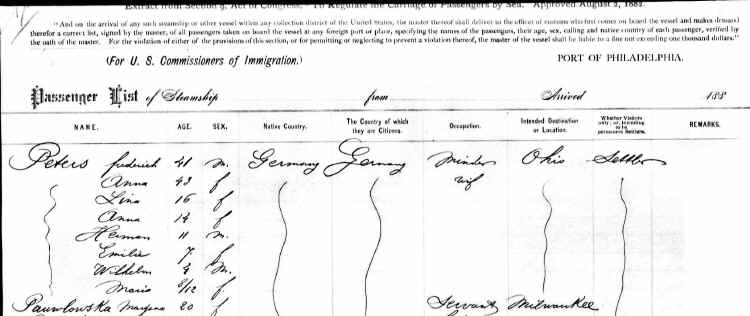 Extract from Section 9, Act of Congress, "To Regulate the Carriage of Passengers by Sea." Approved August 2, 1882.
"And on the arrival of any such steamship or other vessel within any collection district of the United States, the master thereof shall deliver to the officer of customs who first comes on board the vessel and makes demand
therefor a correct list, signed by the master, of all passengers taken on board the vessel at any foreign port or place, specifying the names of the passengers, their age, sex, calling and native country of each passenger, verified by
the oath of the master. For the violation of either of the provisions of this section, or for permitting or neglecting to prevent a violation thereof, the master of the vessel shall be liable to a fine not exceeding one thousand dollars."
(For U. S. Commissioners of Immigration.) PORT OF PHILADELPHIA.
Passenger List of Steamship from Arrived 188
NAME. AGE. SEX. Native Country. The Country of which they are Citizens. Occupation. Intended Destination or Location. Whether Visitors only; or, intending to be permanent Settlers. REMARKS.
Peters frederich 41 m. Germany Germany Ohio Settler
Anna 43 f wif
Lina 16 f
Anna 14 f
Herman 11 m.
Emilie 7 f
Wilhelm m.
Marie 8/12 f
Pawlowska 20 f Servant Milwaukee